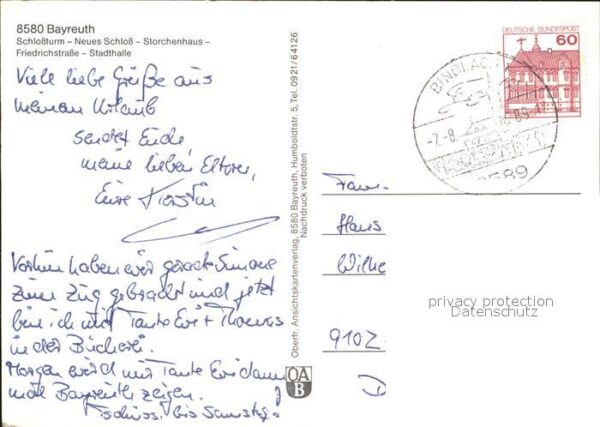 8580 Bayreuth
Schloßturm – Neues Schloß – Storchenhaus –
Friedrichstraße – Stadthalle
Viele liebe Grüße aus
meinem Urlaub
sendet Euch,
meine lieben Eltern,
Eure Kerstin
Vorhin haben wir gerade Simone
zum Zug gebracht und jetzt
bin ich mit Tante Evi + Thomas
in der Bücherei.
Morgen wird mir Tante Evi dann
mal Bayreuth zeigen.
Tschüss! bis Samstag!
Oberfr. Ansichtskartenverlag, 8580 Bayreuth, Humboldtstr. 5, Tel. 0921/64126
Nachdruck verboten
OAB
DEUTSCHE BUNDESPOST
60
BINDLACH
-7.-8.
89
8589
Fam.
Hans
Wilke
privacy protection
Datenschutz
9102
D